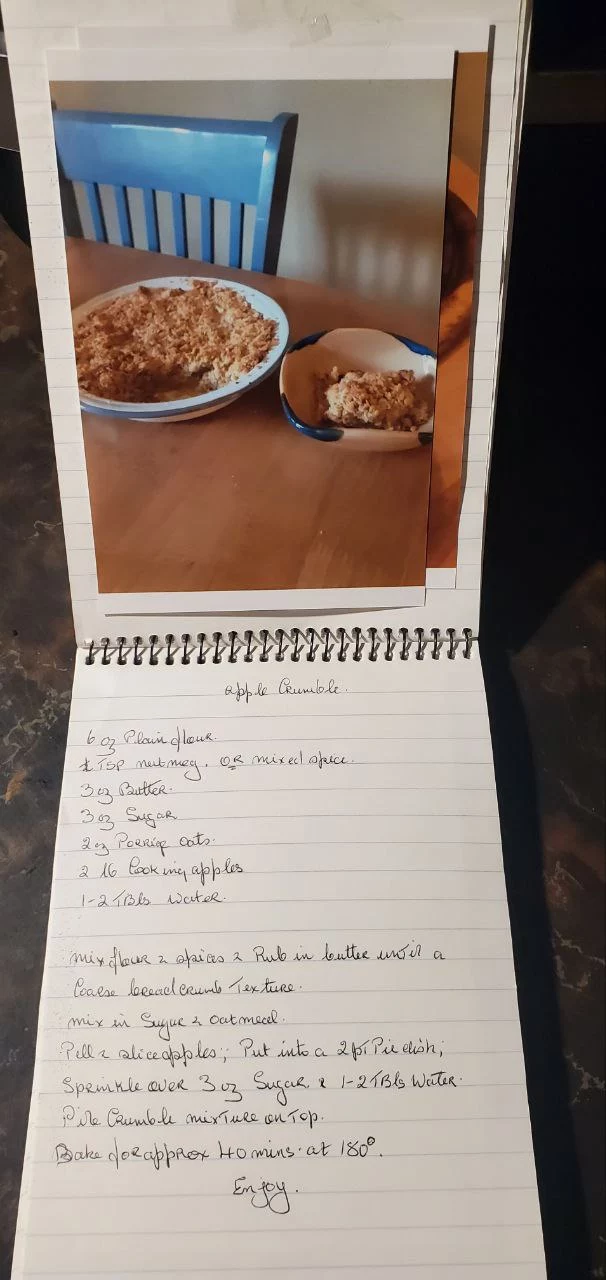 apple Crumble.
6 oz Plain flour.
1 TSP nutmeg. OR mixed spice.
3 oz Butter.
3 oz Sugar
2 oz Porrige oats.
2 lb Cooking apples
1-2 TBls Water.
mix flour & spices & Rub in butter until a
Coarse breadcrumb Texture.
mix in Sugar & oatmeal.
Pell & slice apples; Put into a 2pt Pie dish;
Sprinkle over 3 oz Sugar & 1-2 TBls Water.
Pile Crumble mixture on Top.
Bake for approx 40 mins. at 180°.
Enjoy.